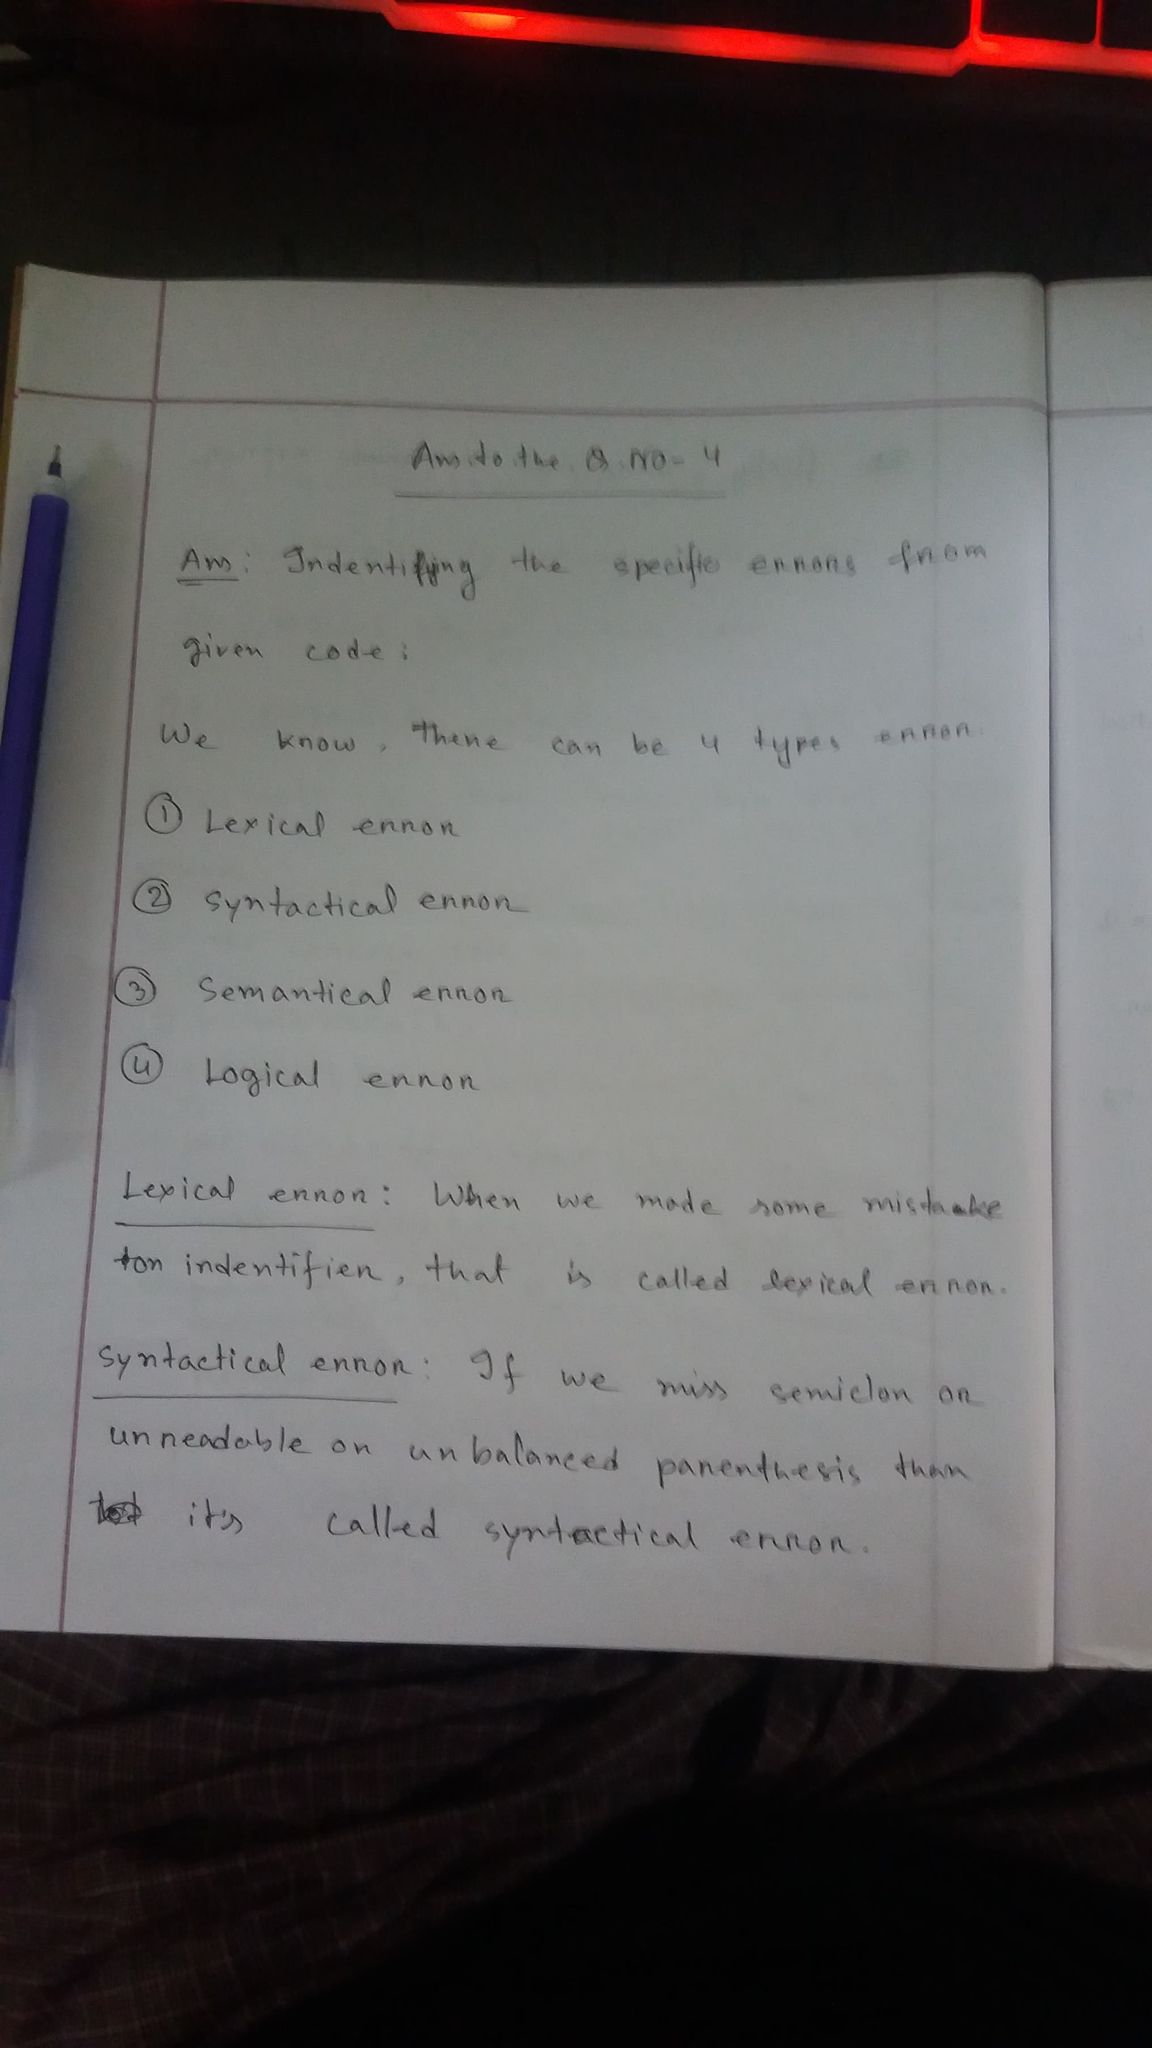 Ans to the Q. NO- 4
Ans: Indentifying the specific errors from
given code:
We know, there can be 4 types error.
① Lexical error
② Syntactical error
③ Semantical error
④ Logical error
Lexical error: When we made some mistake
for indentifier, that is called lexical error.
Syntactical error: If we miss semiclon or
unreadable or unbalanced parenthesis than
it's called syntactical error.